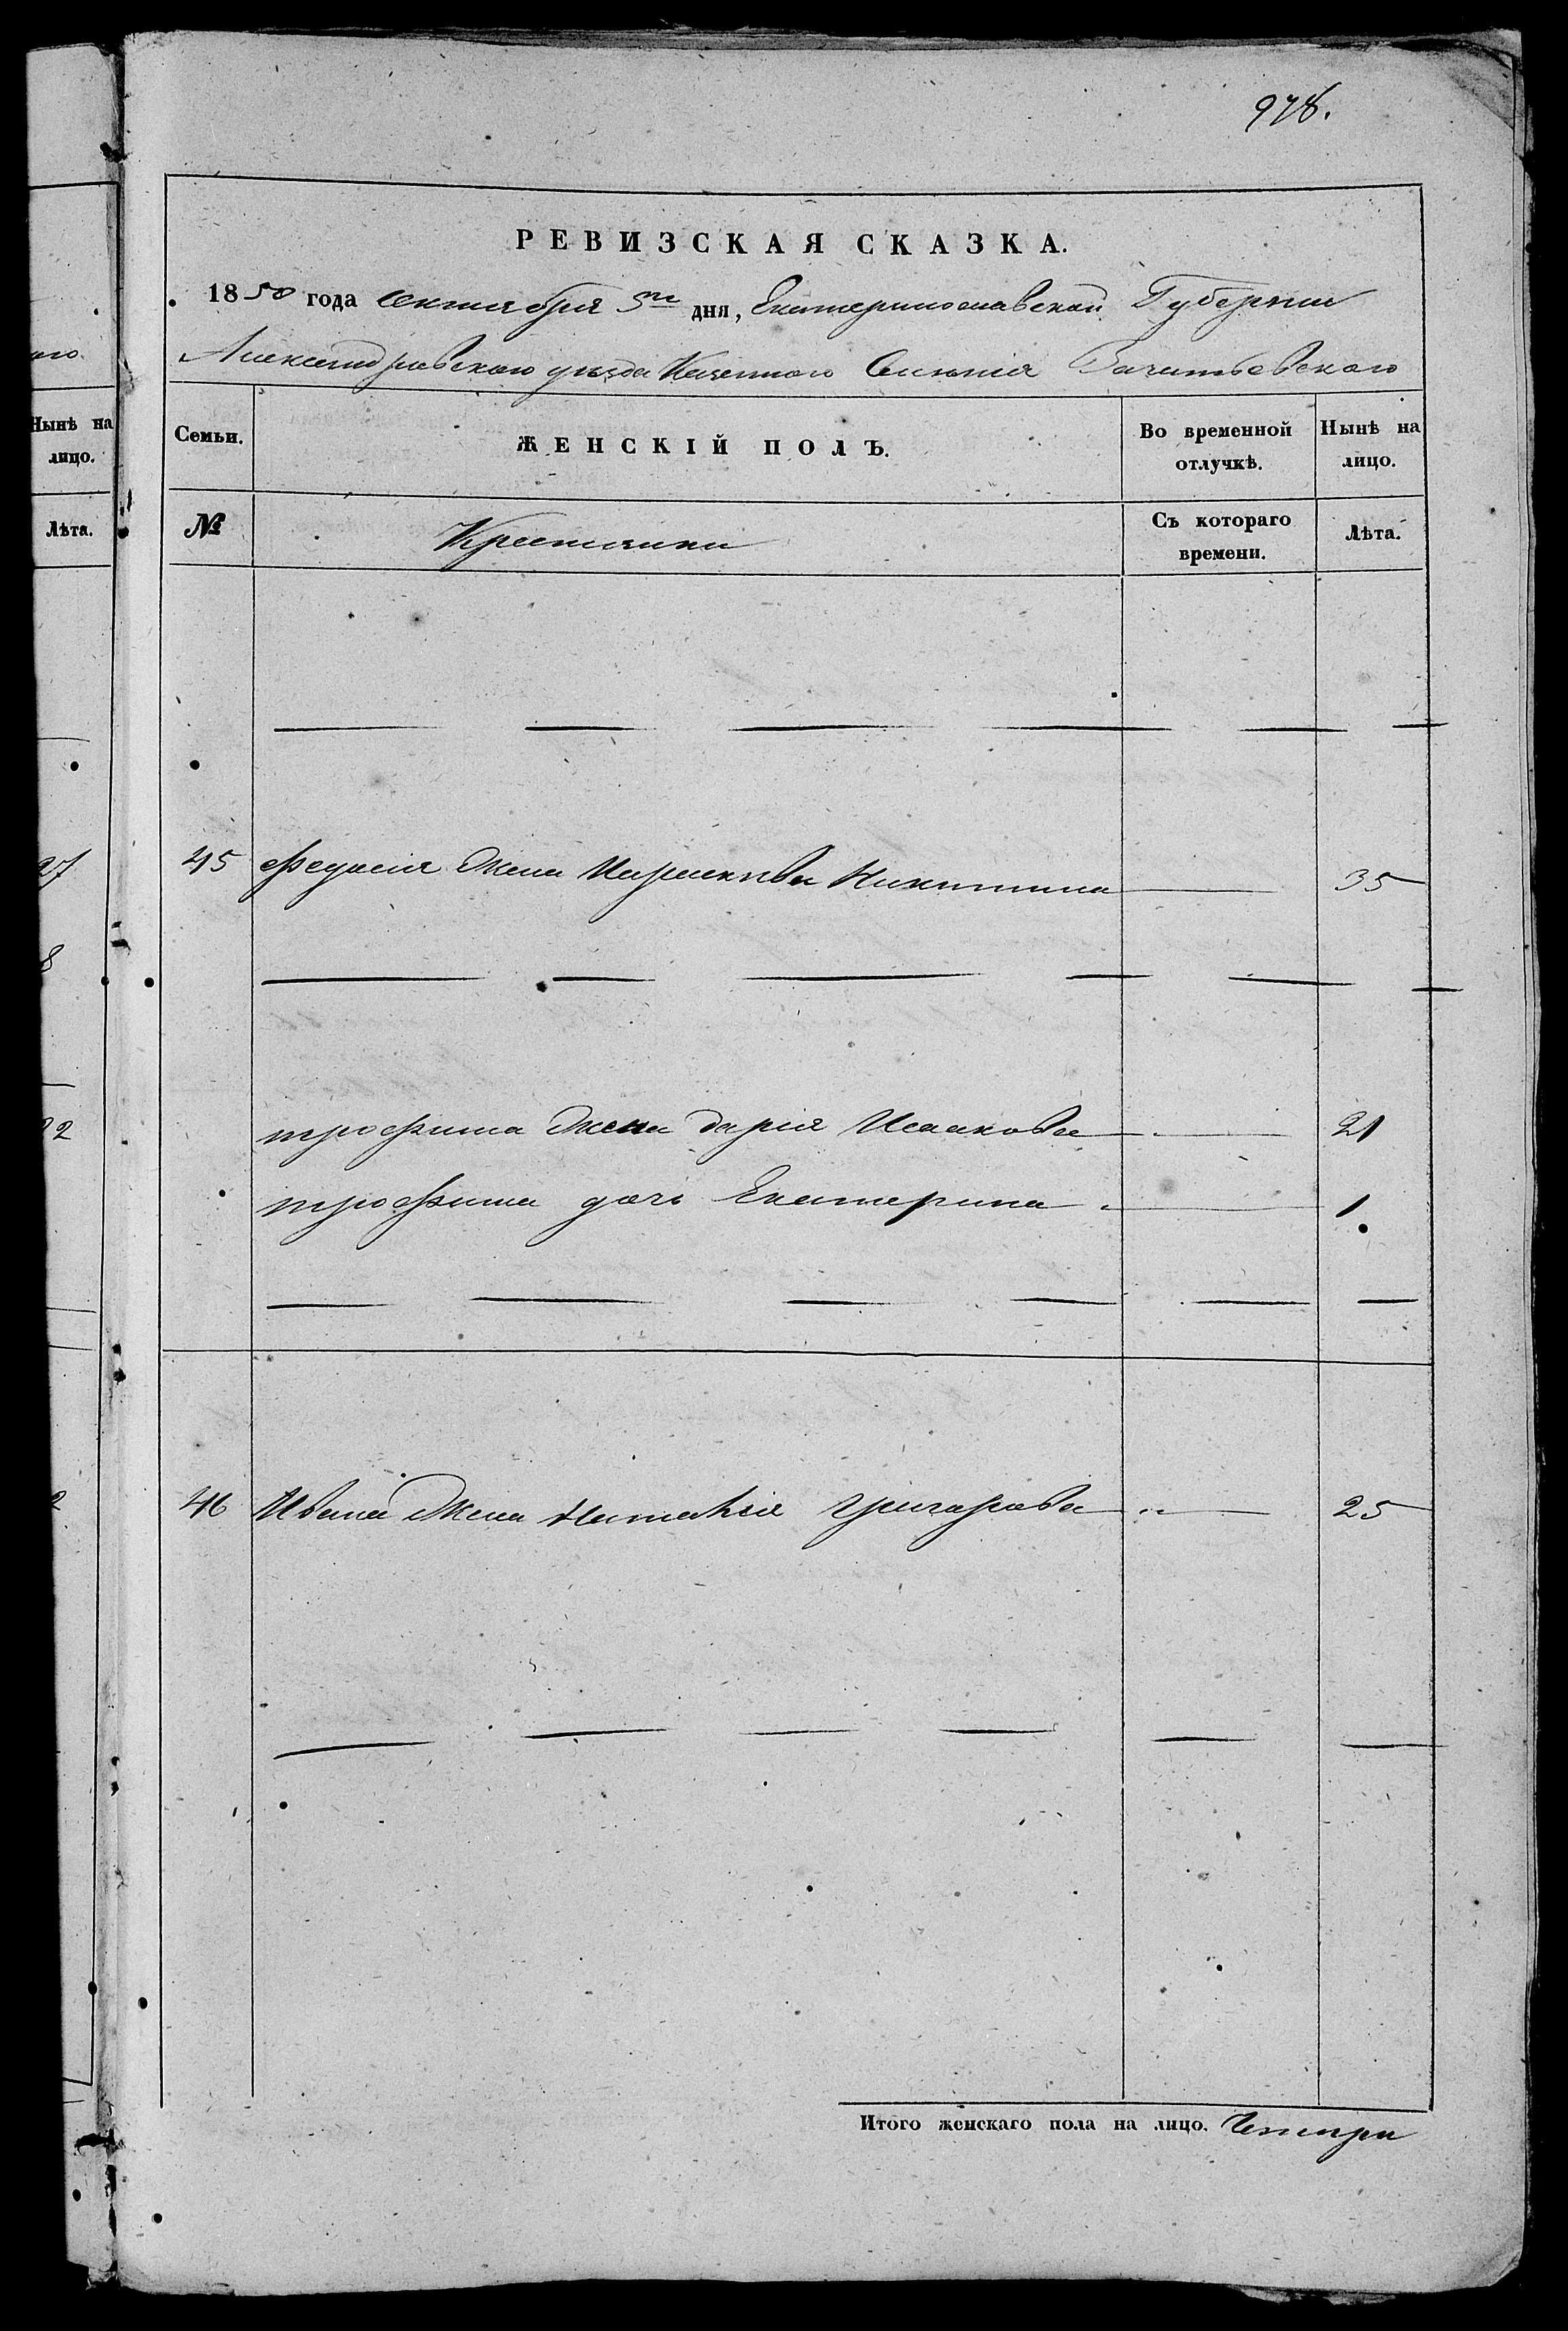 978.
РЕВИЗСКАЯ СКАЗКА.
1850 года Октября 5го дня, Екатеринославской Губернии
Александровского уезда Казенного Селения Зачатьевского
Нынѣ на
лицо.
Лѣта.
27
8
22
2
Семьи. ЖЕНСКІЙ ПОЛЪ. Во временной отлучкѣ. Нынѣ на лицо.
№ Крестьянки Съ котораго времени. Лѣта.
45 Федосия жена Никитина 35
трофима жена дария Исакова 21
трофима дочь Екатерина 1.
46 Ивана жена Наталия григорова 25
Итого женскаго пола на лицо. Четыри